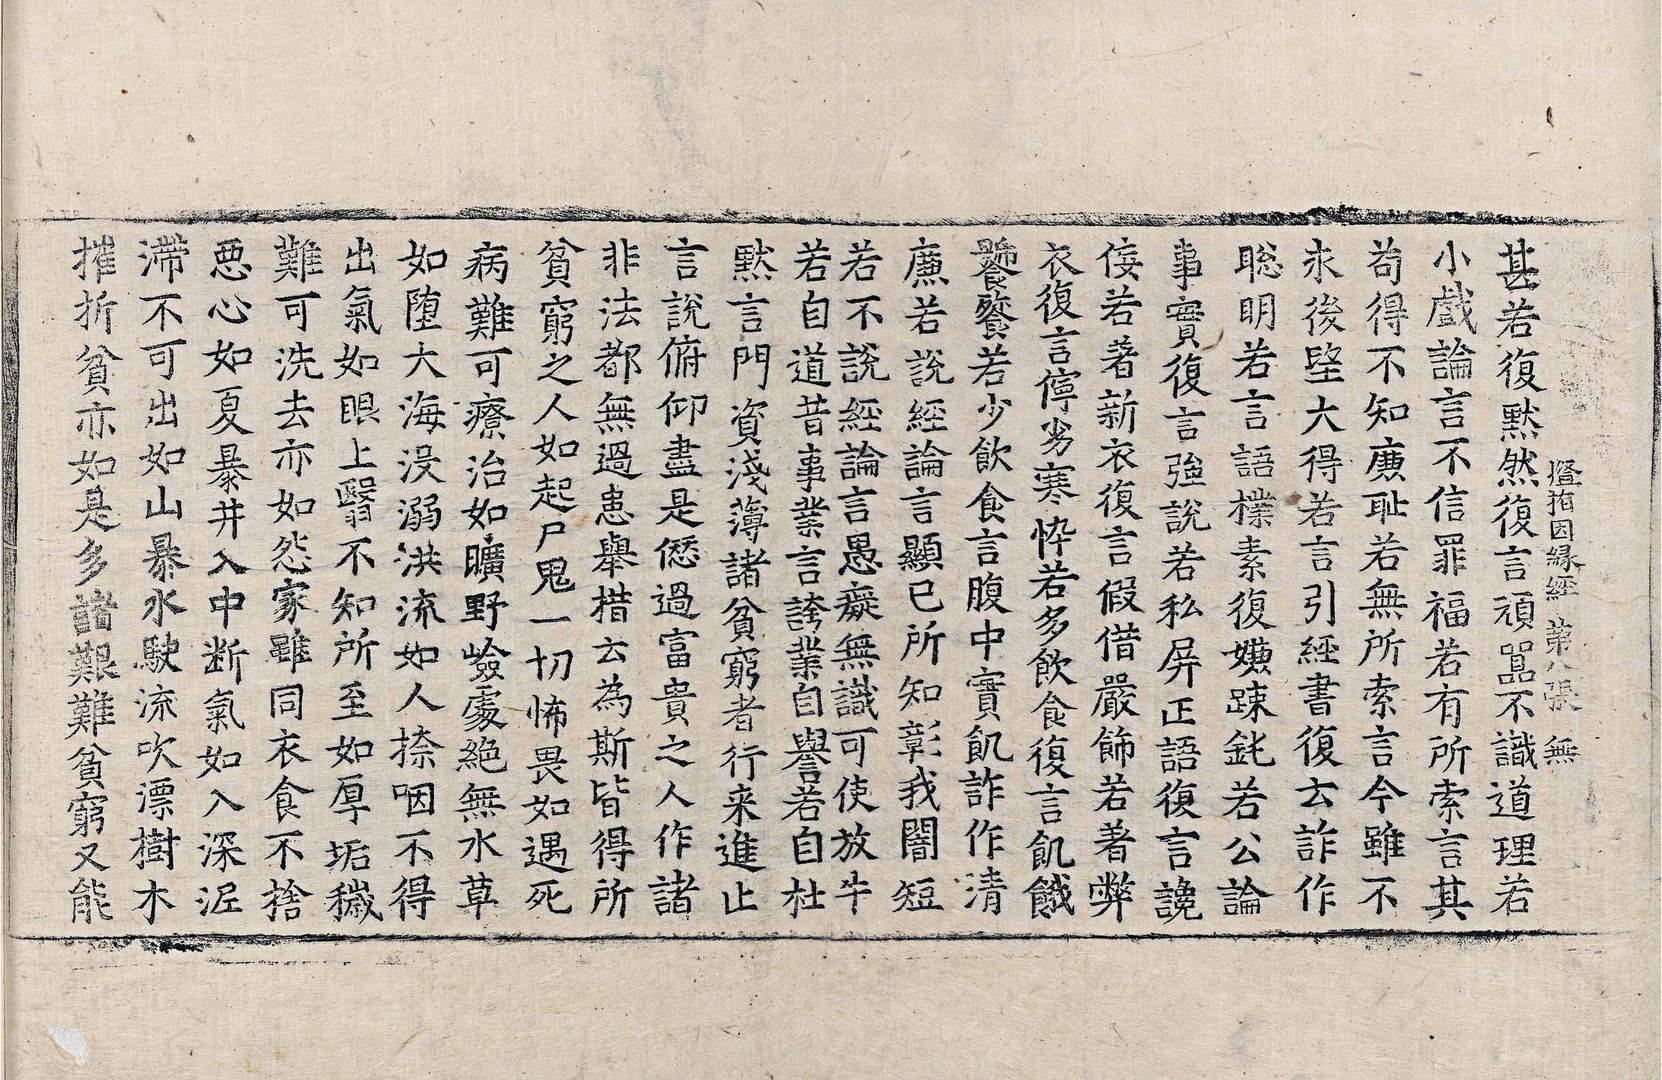 燈指因緣經 第八張 無
甚若復黙然復言頑嚚不識道理若
小戲論言不信罪福若有所索言其
苟得不知廉耻若無所索言今雖不
求後望大得若言引經書復云詐作
聡明若言語樸素復嫌踈鈍若公論
事實復言強說若私屏正語復言讒
侫若著新衣復言假借嚴飾若著弊
衣復言儜劣寒悴若多飲食復言飢餓
饕餮若少飲食言腹中實飢詐作清
廉若說經論言顯已所知彰我闇短
若不說經論言愚癡無識可使放牛
若自道昔事業言誇業自譽若自杜
黙言門資淺薄諸貧窮者行来進止
言說俯仰盡是愆過富貴之人作諸
非法都無過患舉措云為斯皆得所
貧窮之人如起尸鬼一切怖畏如遇死
病難可療治如曠野嶮處絕無水草
如墮大海没溺洪流如人捺咽不得
出氣如眼上翳不知所至如厚垢穢
難可洗去亦如怨家雖同衣食不捨
惡心如夏暴井入中断氣如入深泥
滯不可出如山暴水駛流吹漂樹木
摧折貧亦如是多諸艱難貧窮又能